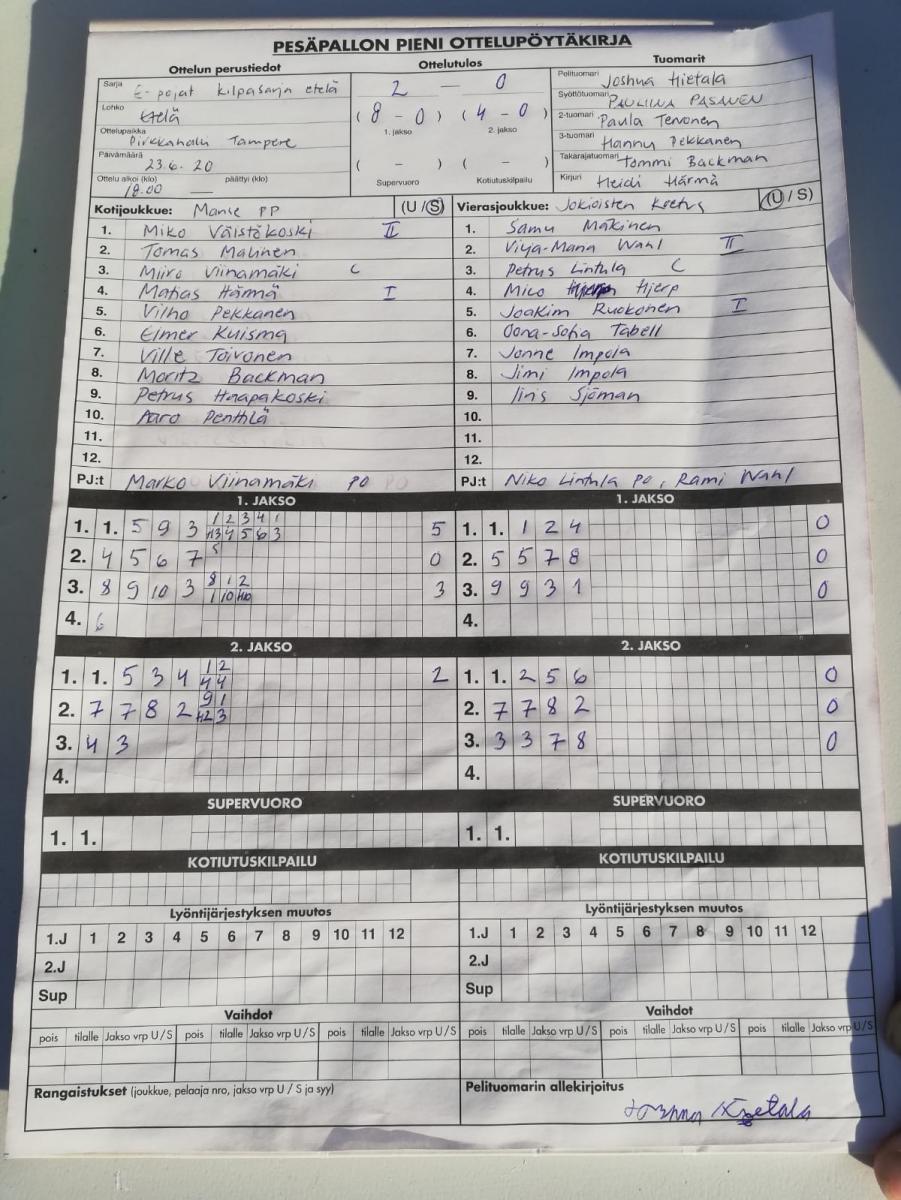 PESÄPALLON PIENI OTTELUPÖYTÄKIRJA
Ottelun perustiedot
Sarja E-pojat kilpasarja etelä
Lohko Etelä
Ottelupaikka Pirkkahalli Tampere
Päivämäärä 23.6.20
Ottelu alkoi (klo) päättyi (klo)
18.00 —
Ottelutulos
2 — 0
(8 - 0) (4 - 0)
1. jakso 2. jakso
( - ) ( - )
Supervuoro Kotiutuskilpailu
Tuomarit
Pelituomari Joshua Hietala
Syöttötuomari PAULIINA PASANEN
2-tuomari Paula Tervonen
3-tuomari Hannu Pekkanen
Takarajatuomari Tommi Backman
Kirjuri Heidi Härmä
Kotijoukkue: Manse PP (U/S)
1. Miko Välstökoski II
2. Tomas Malinen
3. Miiro Viinamäki C
4. Matias Härmä I
5. Vilho Pekkanen
6. Elmer Kuisma
7. Ville Toivonen
8. Moritz Backman
9. Petrus Haapakoski
10. Aaro Penttilä
11.
12.
PJ:t Marko Viinamäki PO
Vierasjoukkue: Jokioisten Koetus (U/S)
1. Samu Mäkinen
2. Vilja-Maria Wahl II
3. Petrus Lintula C
4. Mico Hjerp
5. Joakim Ruokonen I
6. Oona-Sofia Tabell
7. Jonne Impola
8. Jimi Impola
9. Iiris Sjöman
10.
11.
12.
PJ:t Niko Lintula PO, Rami Wahl
1. JAKSO
1. 1. 5 9 3 1 2 3 4 1 5
4 5 6 3
2. 4 5 6 7 5 0
3. 8 9 10 3 8 1 2 3
1 10
4. 6
1. JAKSO
1. 1. 1 2 4 0
2. 5 5 7 8 0
3. 9 9 3 1 0
4.
2. JAKSO
1. 1. 5 3 4 1 2 2
4 4
2. 7 7 8 2 9 1
3
3. 4 3
4.
2. JAKSO
1. 1. 2 5 6 0
2. 7 7 8 2 0
3. 3 3 7 8 0
4.
SUPERVUORO
1. 1.
SUPERVUORO
1. 1.
KOTIUTUSKILPAILU
KOTIUTUSKILPAILU
Lyöntijärjestyksen muutos
1.J 1 2 3 4 5 6 7 8 9 10 11 12
2.J
Sup
Lyöntijärjestyksen muutos
1.J 1 2 3 4 5 6 7 8 9 10 11 12
2.J
Sup
Vaihdot
pois tilalle Jakso vrp U/S pois tilalle Jakso vrp U/S pois tilalle Jakso vrp U/S
Vaihdot
pois tilalle Jakso vrp U/S pois tilalle Jakso vrp U/S pois tilalle Jakso vrp U/S
Rangaistukset (joukkue, pelaaja nro, jakso vrp U / S ja syy)
Pelituomarin allekirjoitus
Joshua Hietala